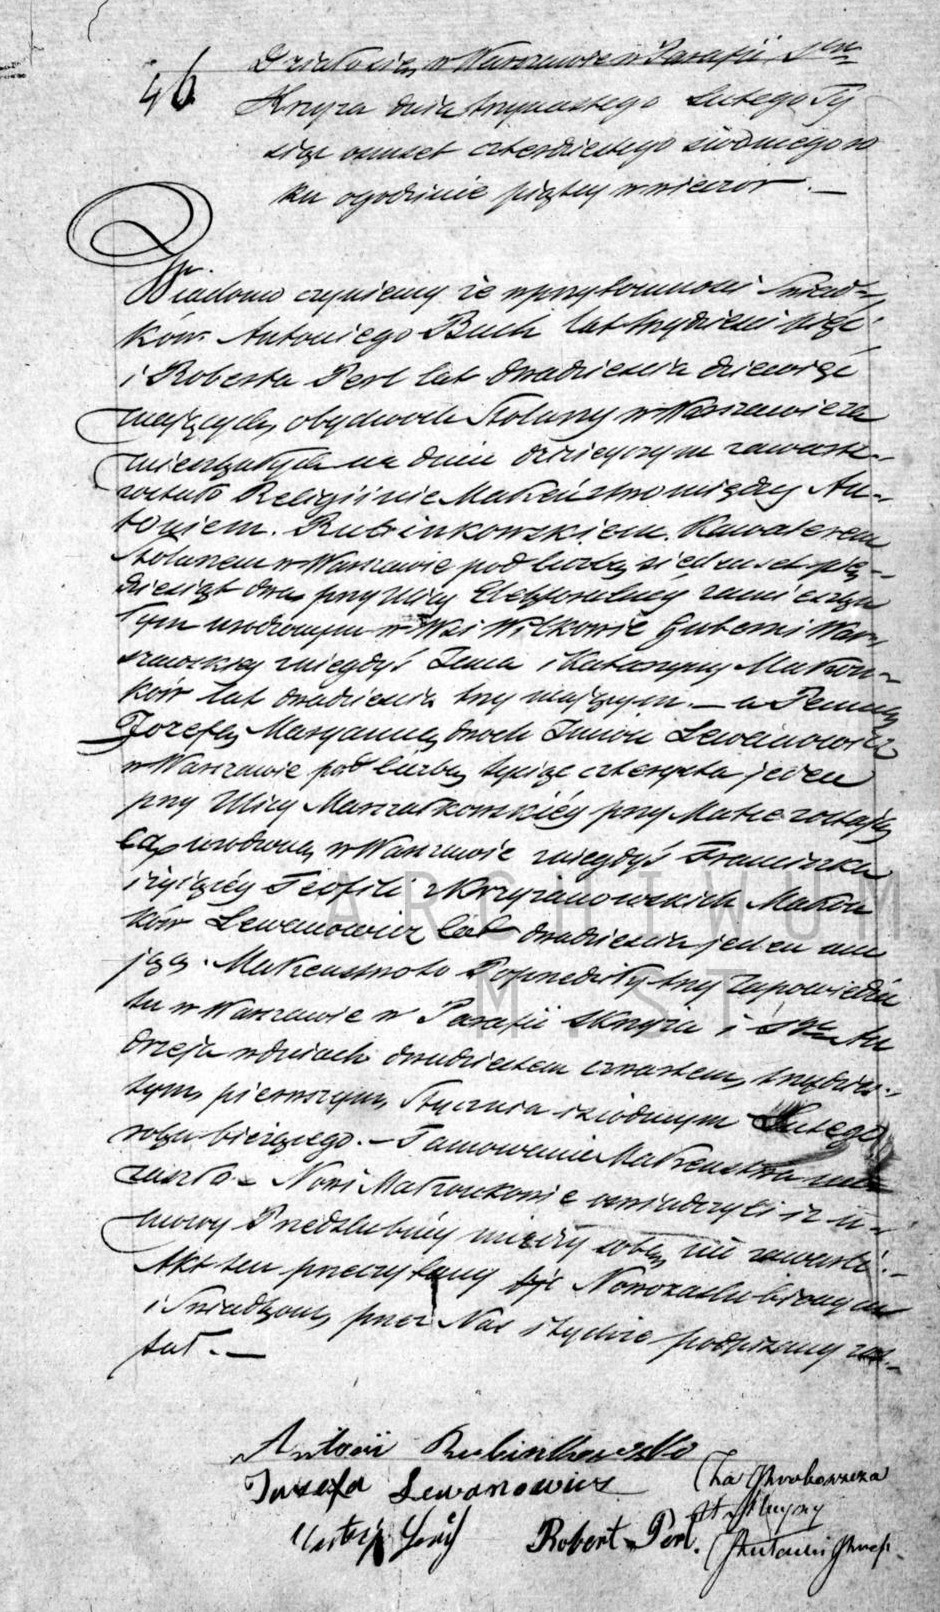 46
Działo się w Warszawie w Parafii Sgo
Krzyża dnia trzynastego Lutego Ty
siąc osmset czterdziestego siodmego ro
ku o godzinie piątey wieczor. —
Wiadomo czyniemy że w przytomności Swiad-
ków Antoniego Buch lat trzydzieści pięć
i Roberta Perl lat dwadzieścia dziewięć
maiących, obydwoch Stolarzy w Warszawie za
mieszkałych na dniu dzisieyszym zawarte
zostało Religijnie Małżeństwo między An-
tonim Rubinkowskiem Kawalerem
Stolarzem w Warszawie pod liczbą siedmset pię-
dziesiąt dwa przy Ulicy Elektoralnéy zamieszka
łym urodzonym w Wsi Wilkowie Gubernii War-
szawskiey niegdyś Jana i Katarzyny Małżon-
ków lat dwadzieścia trzy maiącym. — a Panną
Jozefą Maryanną dwoch Imion Lewanowicz
w Warszawie pod liczbą tysiąc czterysta jeden
przy Ulicy Marszałkowskiéy przy Matce zostaią
cą, urodzoną w Warszawie niegdyś Franciszka
i żyiącéy Teofili z Krzyżanowskich Małżon
ków Lewanowicz lat dwadzieścia jeden ma
jącą. Małżeństwo to Poprzedziły trzy Zapowiedzi
tu w Warszawie w Parafii S Krzyża i Sgo An
drzeja w dniach dwudziestem czwartem, trzydzies-
tym pierwszym Stycznia i siódmym Lutego
roku bieżącego. — Tamowanie Małżeństwa nie
zaszło. — Nowi Małżonkowie oswiadczyli iż u-
mowy Przedslubnéy między sobą nie zawarli. —
Akt ten przeczytany Nowozaslubionym
i Swiadkom, przez Nas i tychże podpisany zos-
tał. —
Antoni Rubinkowski
Juzefa Lewanowicz
Robert Perl.
ARCHIWUM
M ST W